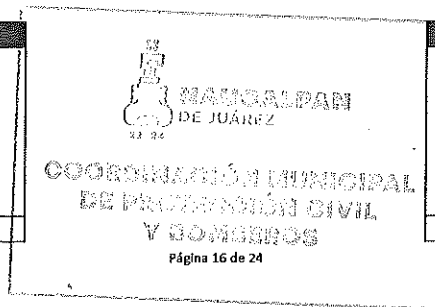 NAUCALPAN
DE JUÁREZ
22 24
COORDINACIÓN MUNICIPAL
DE PROTECCIÓN CIVIL
Y BOMBEROS
Página 16 de 24